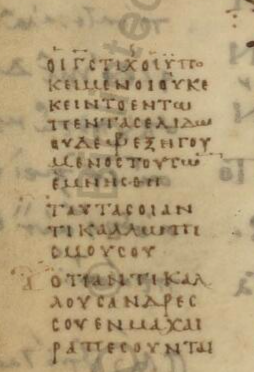 ΟΙ Γ ϹΤΙΧΟΙ ΟΙ ΥΠΟ
ΚΕΙΜΕΝΟΙ ΟΥΚ Ε
ΚΕΙΝΤΟ ΕΝ ΤΩ
ΠΕΝΤΑϹΕΛΙΔΩ
ΟΥΔΕ ΕΞΗΓΟΥ
ΜΕΝΟϹ ΤΟΥΤΩ
ΕΜΝΗϹΘΗ
ΤΑΥΤΑ ϹΟΙ ΑΝ
ΤΙ ΚΑΛΛΩΠΙ
ϹΜΟΥ ϹΟΥ
ΟΤΙ ΑΝΤΙ ΚΑΛ
ΛΟΥϹ ΑΝΔΡΕϹ
ϹΟΥ ΕΝ ΜΑΧΑΙ
ΡΑ ΠΕϹΟΥΝΤΑΙ